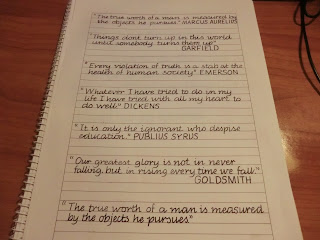 "The true worth of a man is measured by
the objects he pursues." MARCUS AURELIUS
"Things dont turn up in this world
until somebody turns them up"
GARFIELD
"Every violation of truth is a stab at the
health of human society" EMERSON
"Whatever I have tried to do in my
life I have tried with all my heart to
do well." DICKENS
"It is only the ignorant who despise
education." PUBLIUS SYRUS
"Our greatest glory is not in never
falling, but in rising every time we fall."
GOLDSMITH
"The true worth of a man is measured
by the objects he pursues"